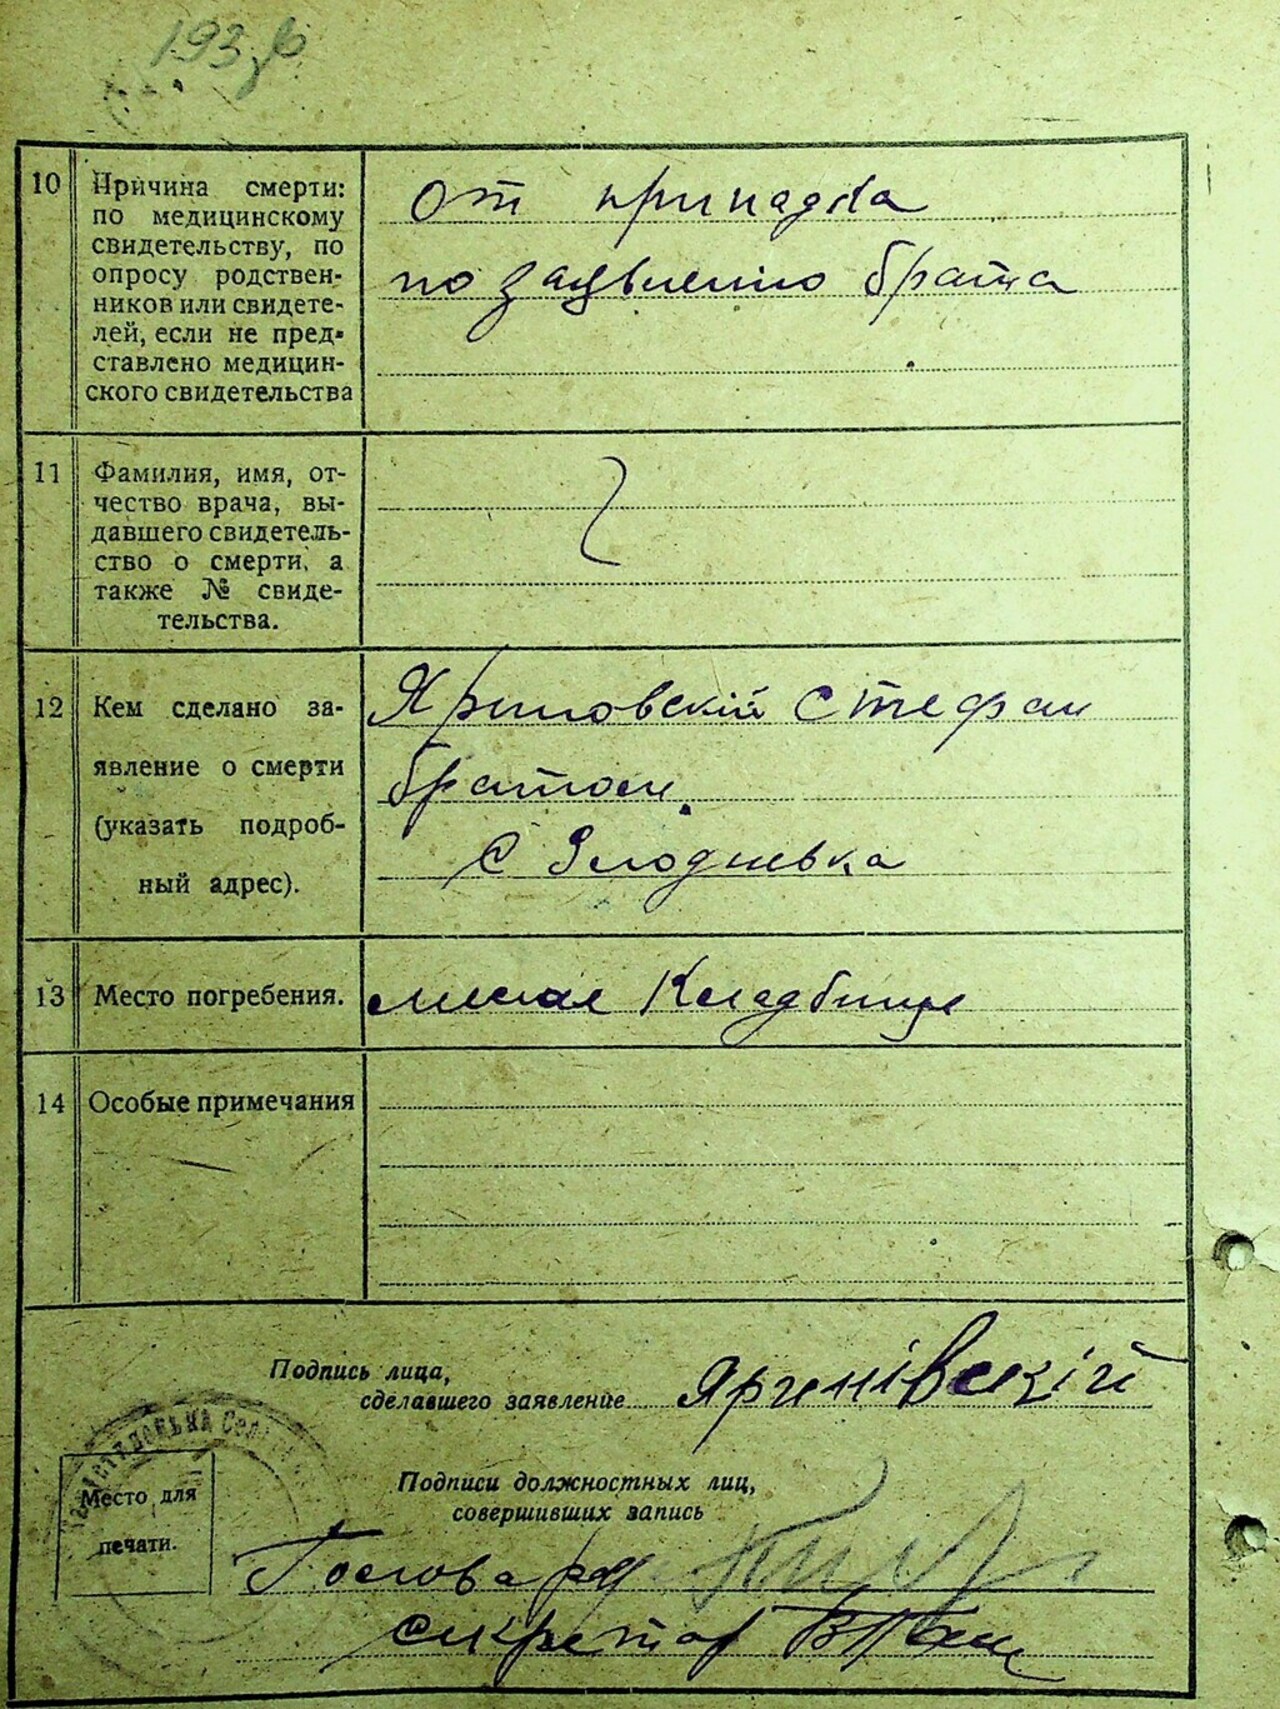 10 Причина смерти: по медицинскому свидетельству, по опросу родственников или свидетелей, если не представлено медицинского свидетельства
от припадка
по заявленію брата
11 Фамилия, имя, от-
чество врача, вы-
давшего свидетель-
ство о смерти, а
также № свиде-
тельства.
12 Кем сделано за-
явление о смерти
(указать подроб-
ный адрес).
Стефан
братом.
с Злодневка
13 Место погребения.
Кладбище
14 Особые примечания
Подпись лица,
сделавшего заявление
Подписи должностных лиц,
совершивших запись
Место для
печати.
Голова
секретар